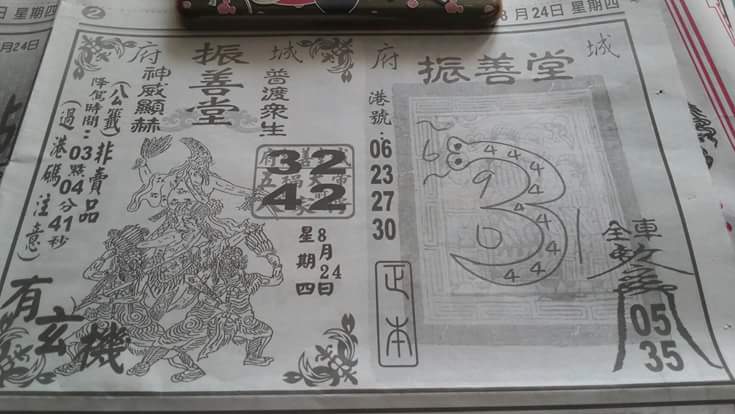 ②
8月24日 星期四
日 星期四
月24日
府城
振善堂
神威顯赫
普渡眾生
(公籤非賣品)
降駕時間:03點04分41秒
(過港碼注意)
32
42
8月24日
星期四
有玄機
府城
振善堂
港號:
06
23
27
30
正本
3
9
4 4 4 4 4 4 4 4 4 4
全車
05
35